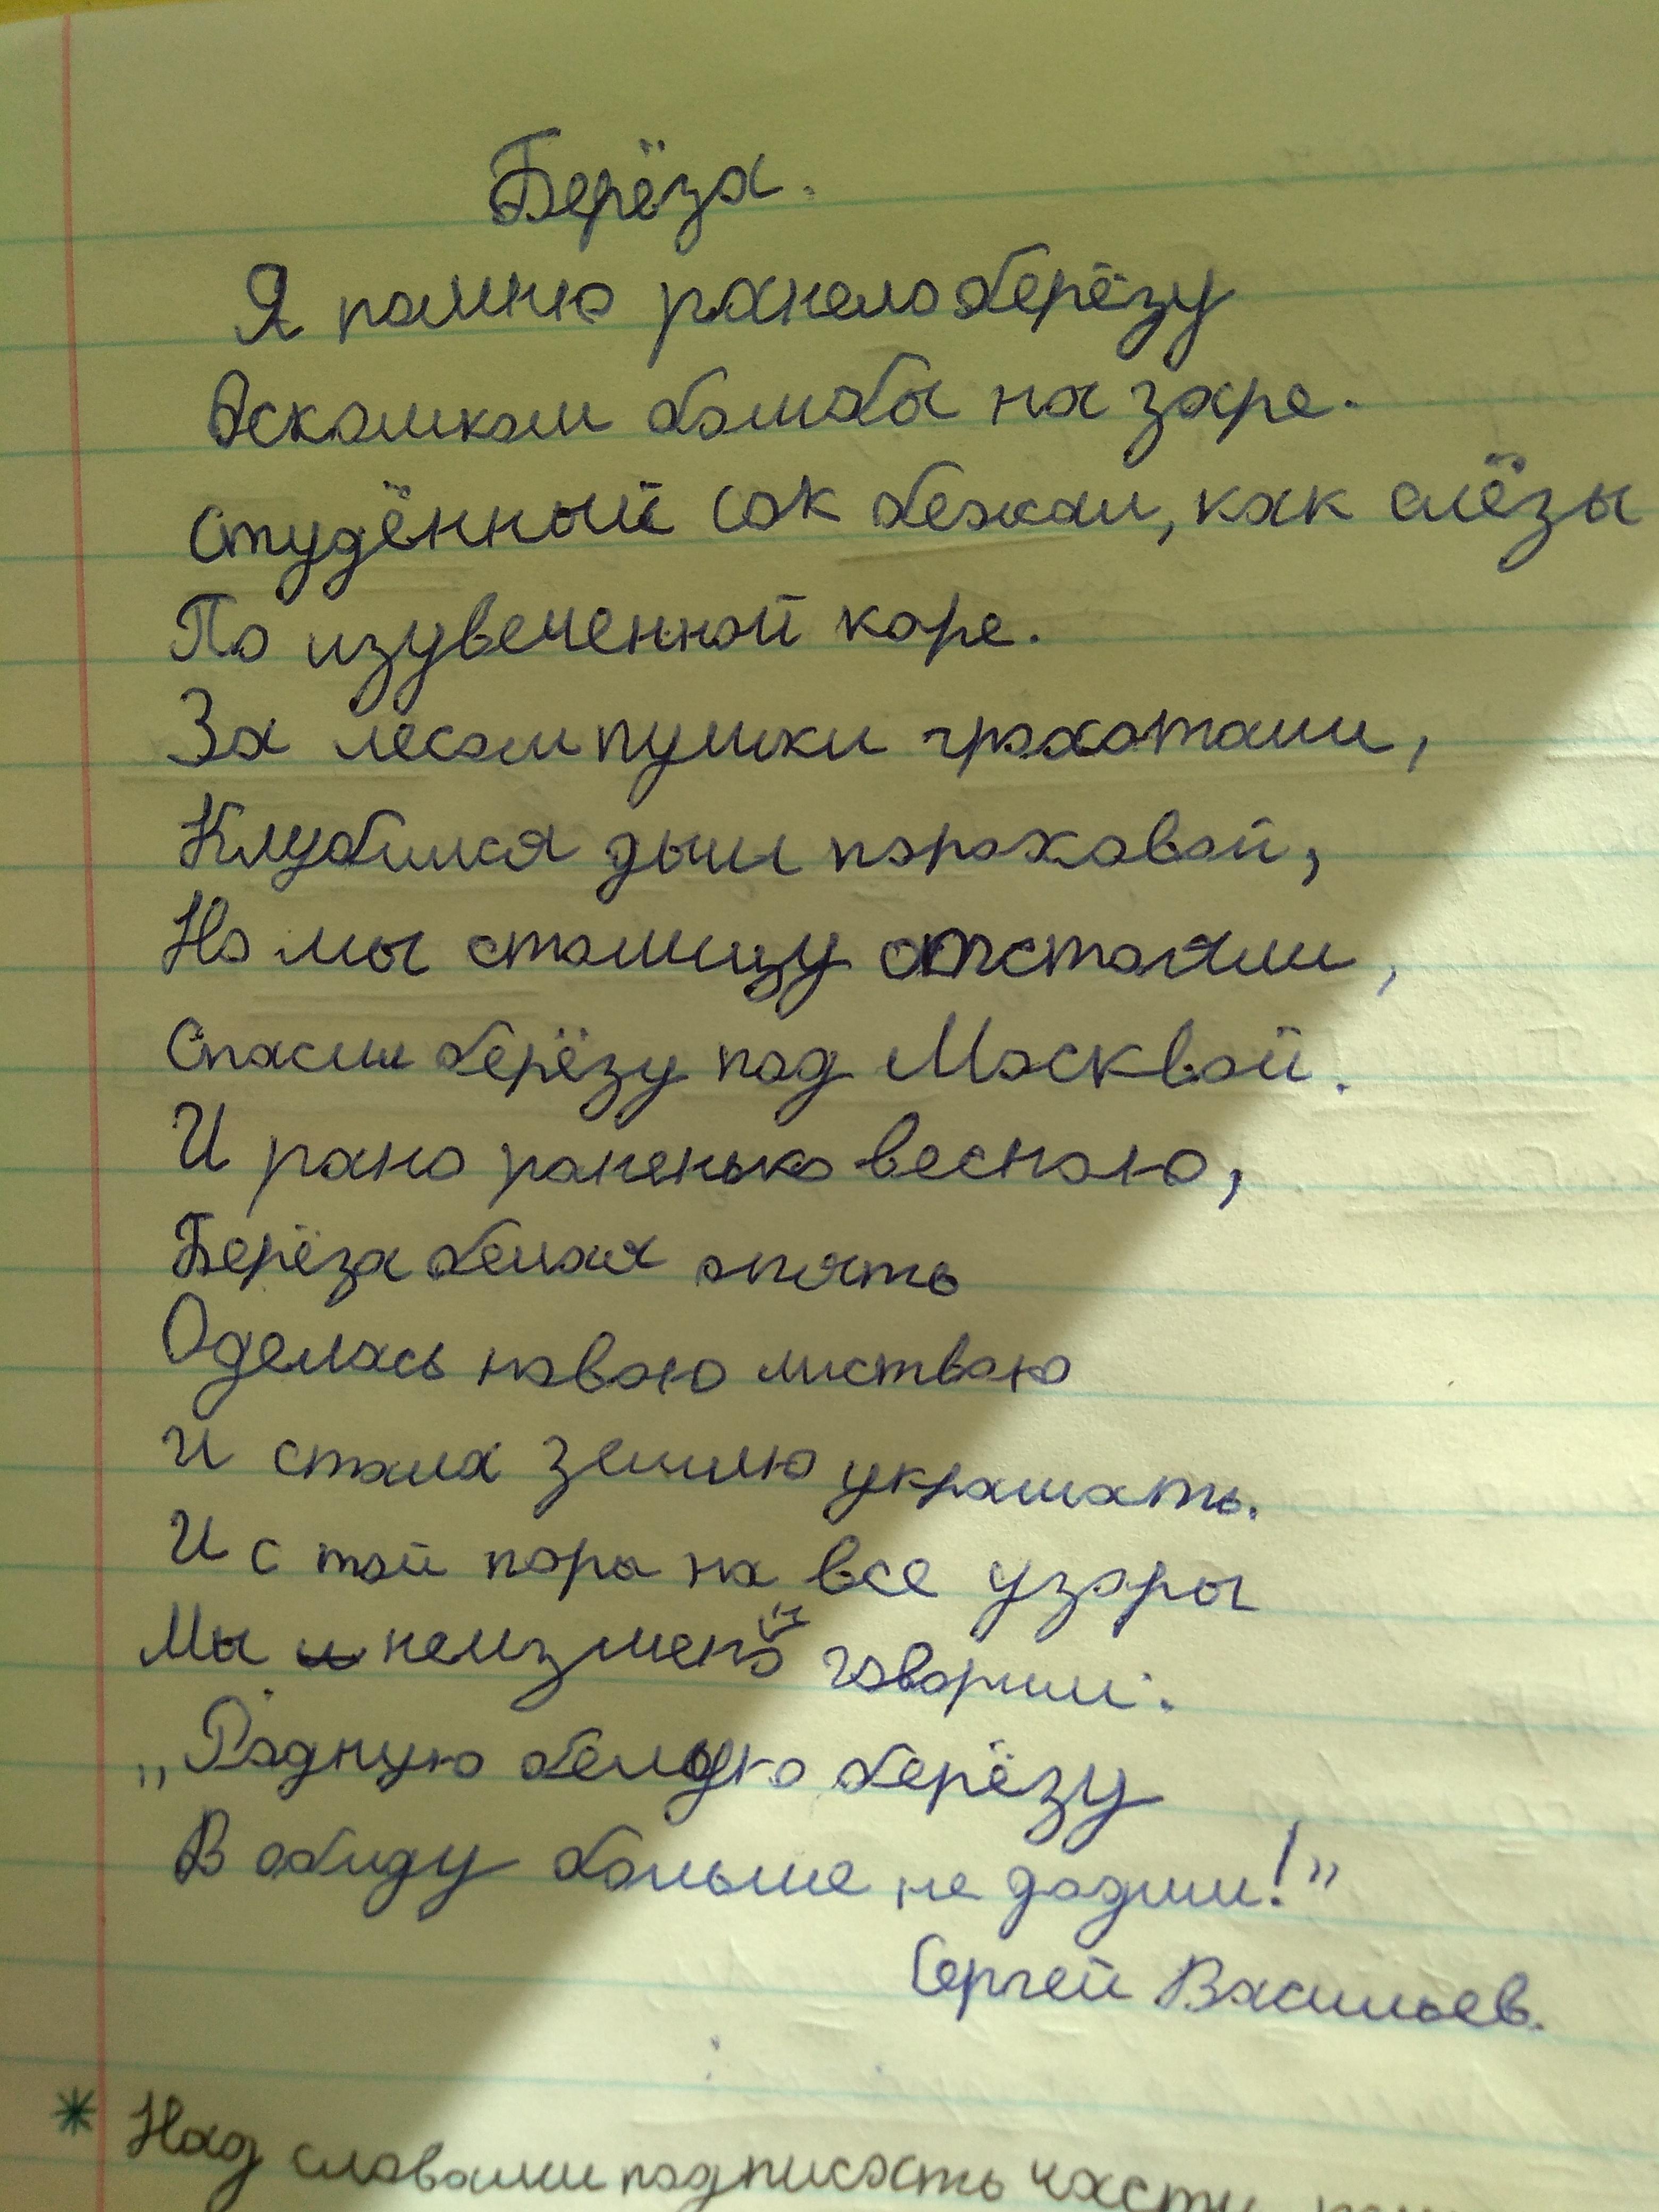 Берёза.
Я помню ранело берёзу
Осколком бомбы на заре.
Студённый сок бежал, как слёзы
По изувеченной коре.
За лесом пушки грохотали,
Клубился дым пороховой,
Но мы столицу отстояли,
Спасли берёзу под Москвой.
И рано раненько весною,
Берёза белая опять
Оделась новою листвою
И стала землю украшать.
И с той поры на все узоры
Мы неизмено говорим:
„Родную белую берёзу
В обиду больше не дадим!”
Сергей Васильев.
* Над словами подписать части